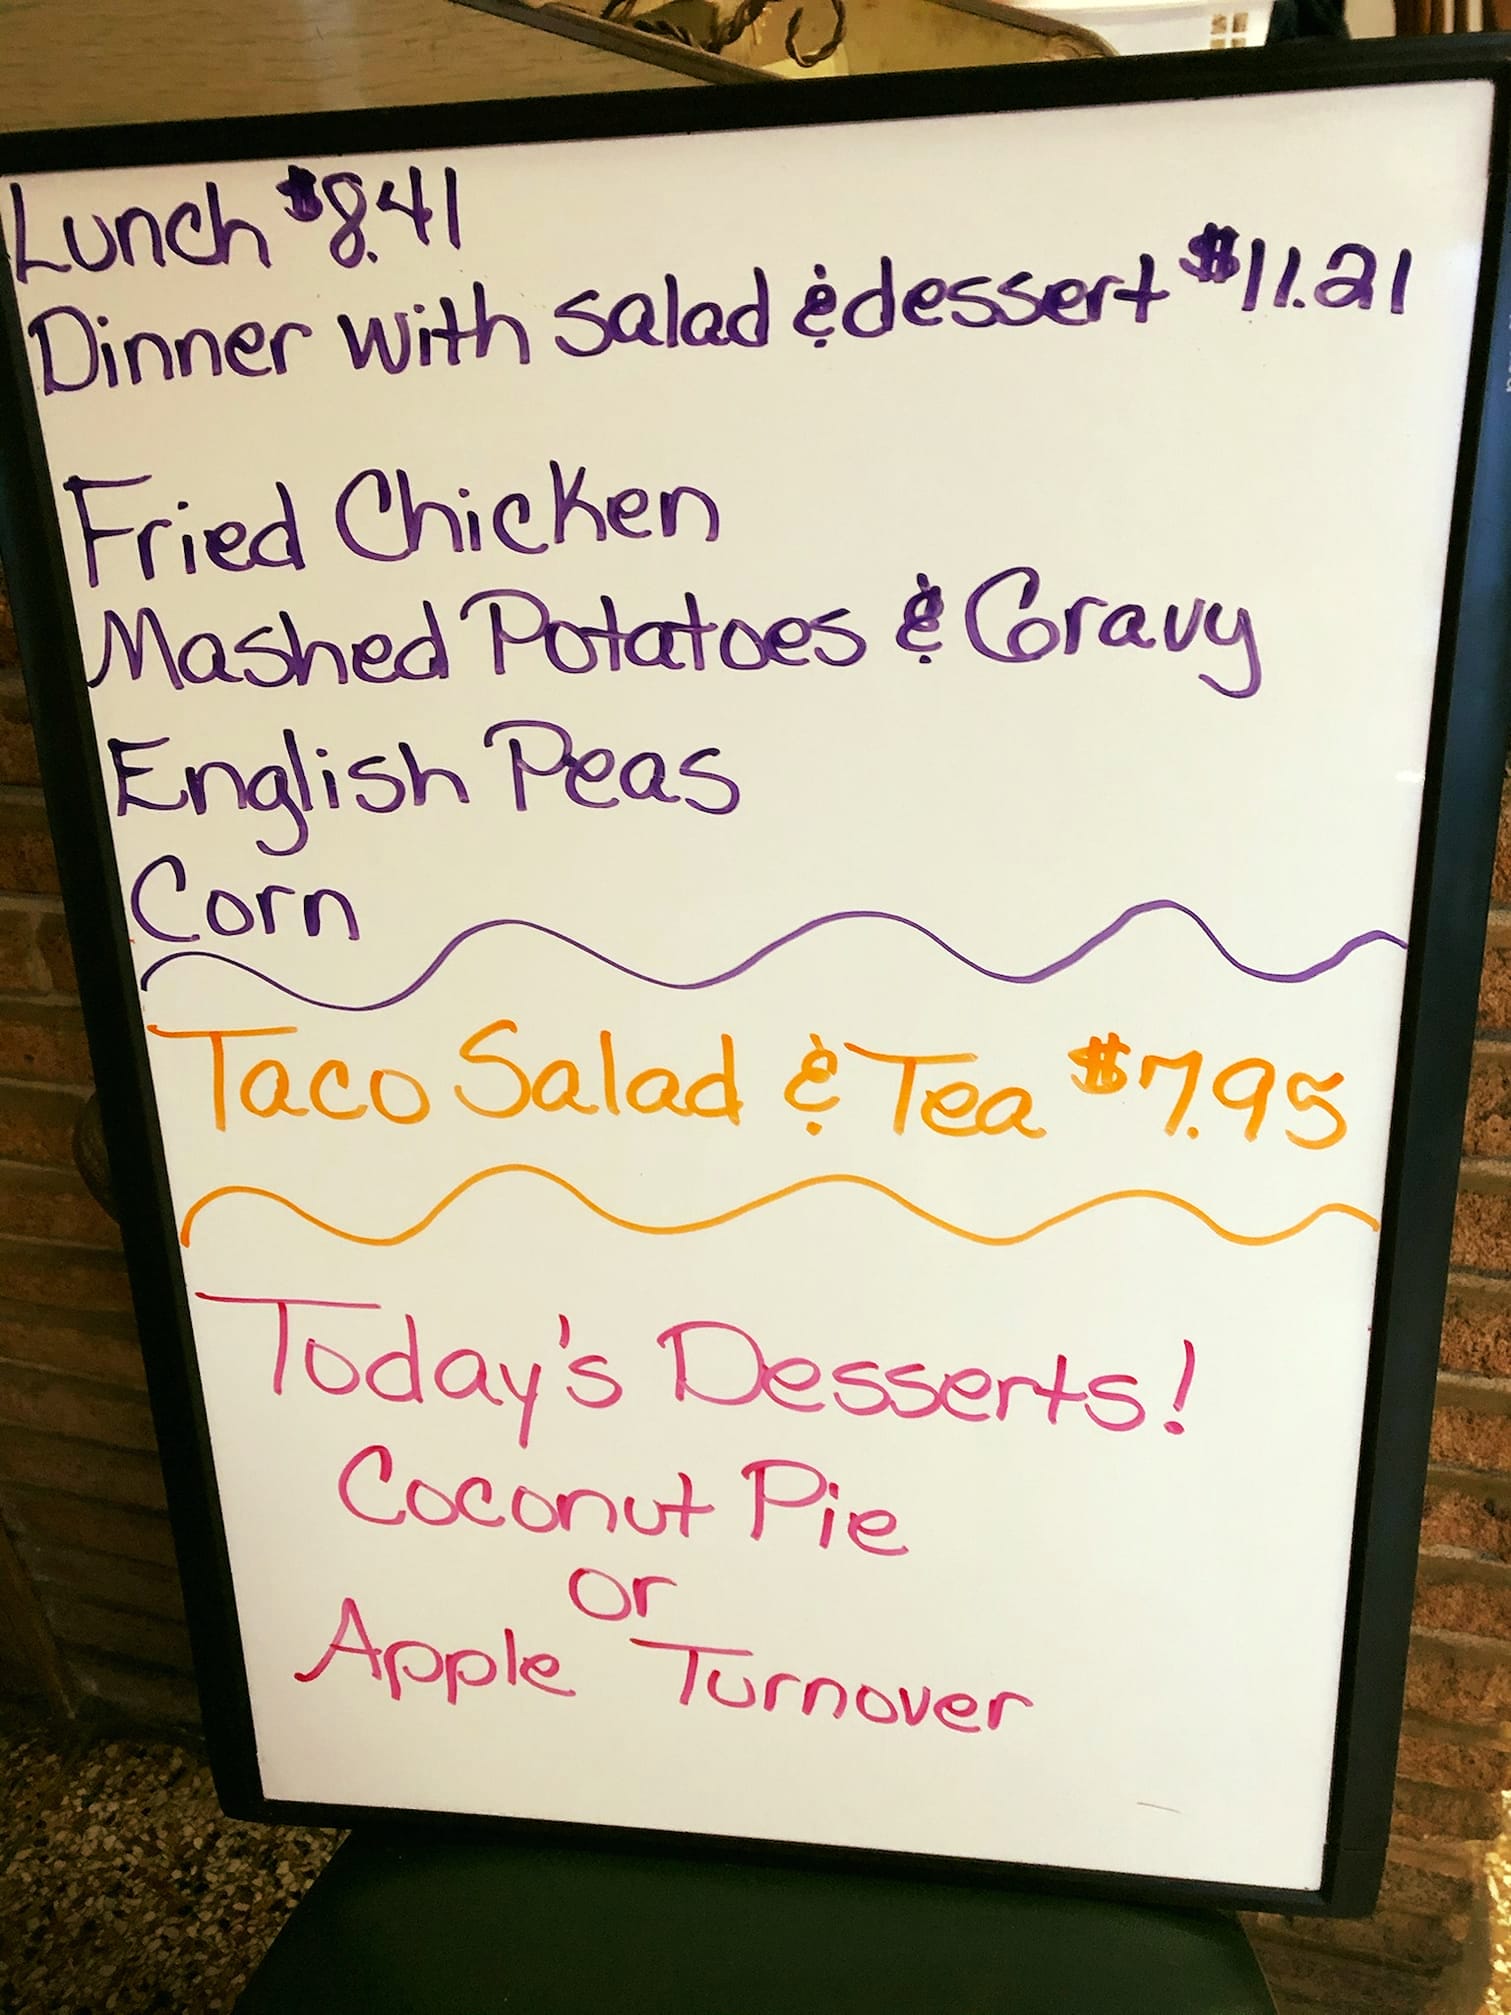 Lunch $8.41
Dinner with salad & dessert $11.21
Fried Chicken
Mashed Potatoes & Gravy
English Peas
Corn
Taco Salad & Tea $7.95
Today's Desserts!
Coconut Pie
or
Apple Turnover